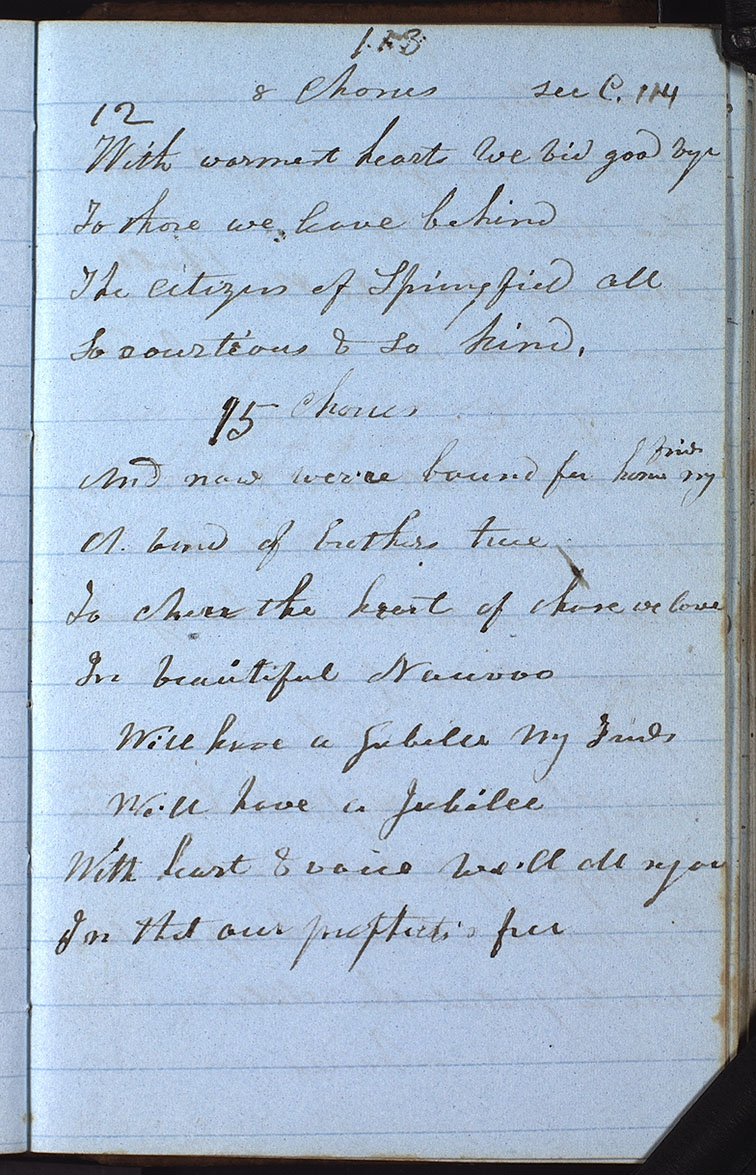 113
8 Chorus see C. 114
12
With warmest hearts we bid good bye
To those we leave behind
The citizens of Springfield all
So courteous & so kind.
15 Chorus
And now we're bound for home my frnds
A band of brothers true
To cheer the heart of those we love
In beautiful Nauvoo
Will have a Jubilee My Frnds
Will have a Jubilee
With heart & voice we'll all rejoice
In that our prophet's free